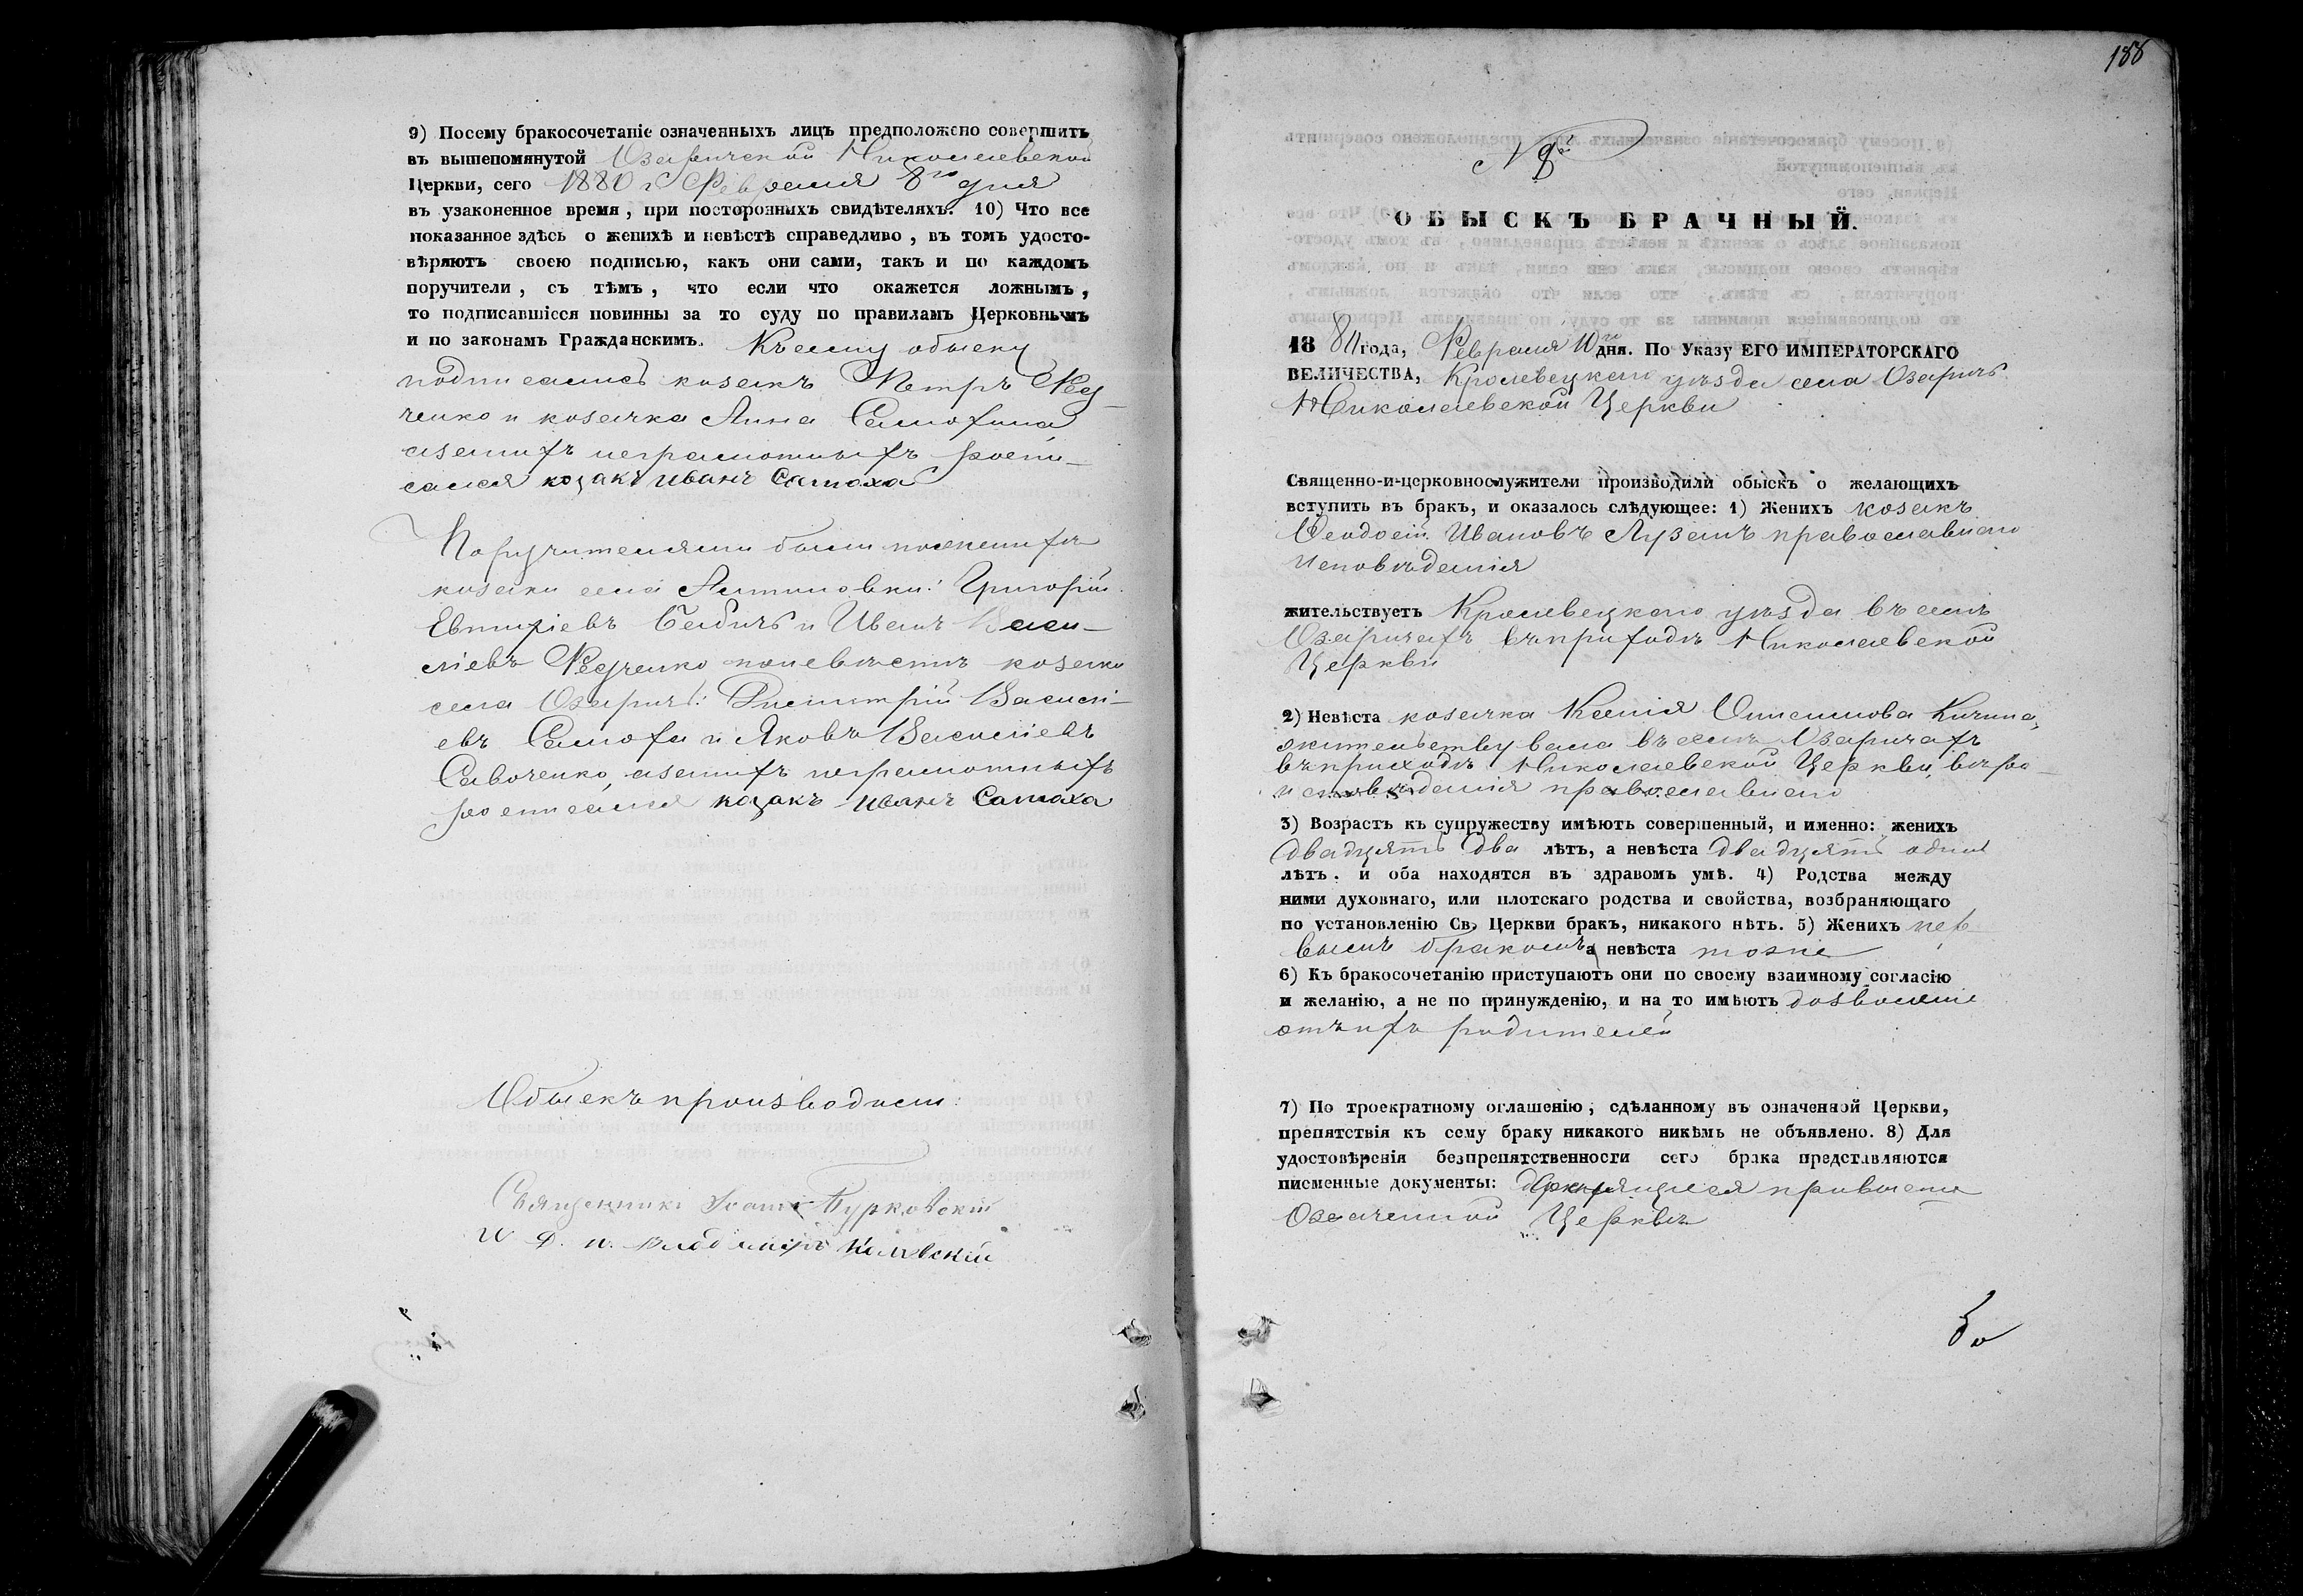 9) Посему бракосочетаніе означенныхъ лицъ предположено совершить
въ вышепомянутой Озаричской Николаевской
Церкви, сего 1880 г. Февраля 8го дня
въ узаконенное время, при посторонныхъ свидѣтеляхъ. 10) Что все
показанное здѣсь о женихѣ и невѣстѣ справедливо, въ томъ удосто-
вѣряютъ своею подписью, какъ они сами, такъ и по каждомъ
поручители, съ тѣмъ, что если что окажется ложнымъ,
то подписавшіеся повинны за то суду по правиламъ Церковнымъ
и по законамъ Гражданскимъ. Къ сему обыску
подписались козакъ Петръ Фед-
ченко и козачка Анна Самохина,
а за нихъ неграмотныхъ роспи-
сался козакъ Иванъ Самоха
Поручителями были по женихѣ
козаки села Антоновки: Григорій
Евтихіевъ Бабичъ и Иванъ Васи-
ліевъ Федченко по невѣстѣ козаки
села Озаричъ: Димитрій Василі-
евъ Самоха и Яковъ Василіевъ
Савоченко, а за нихъ неграмотныхъ
росписался козакъ Иванъ Самоха
Обыскъ производили:
Священникъ Іоаннъ Бурковскій
И. Д. п. Владиміръ
188
№ 8й
ОБЫСКЪ БРАЧНЫЙ.
1880 года, Февраля 10го дня. По Указу ЕГО ИМПЕРАТОРСКАГО
ВЕЛИЧЕСТВА, Кролевецкаго уѣзда села Озаричъ
Николаевской Церкви
Священно-и-церковнослужители производили обыскъ о желающихъ
вступить въ бракъ, и оказалось слѣдующее: 1) Женихъ козакъ
Феодосій Ивановъ Лузанъ православнаго
исповѣданія
жительствуетъ Кролевецкаго уѣзда въ селѣ
Озаричахъ въ приходѣ Николаевской
Церкви
2) Невѣста козачка Ксенія Онисимова Кичина,
жительствувала въ селѣ Озаричахъ
въ приходѣ Николаевской Церкви, вѣро-
исповѣданія православнаго
3) Возрастъ къ супружеству имѣютъ совершенный, и именно: женихъ
двадцять два лѣтъ, а невѣста двадцять одинъ
лѣтъ. и оба находятся въ здравомъ умѣ. 4) Родства между
ними духовнаго, или плотскаго родства и свойства, возбраняющаго
по установленію Св. Церкви бракъ, никакого нѣтъ. 5) Женихъ пер-
вымъ бракомъ, а невѣста тоже
6) Къ бракосочетанію приступаютъ они по своему взаимному согласію
и желанію, а не по принужденію, и на то имѣютъ дозволеніе
отъ ихъ родителей
7) По троекратному оглашенію, сдѣланному въ означенной Церкви,
препятствія къ сему браку никакого никѣмъ не объявлено. 8) Для
удостовѣренія безпрепятственности сего брака представляются
писменные документы: хранящіеся при выше
означенной Церквѣ